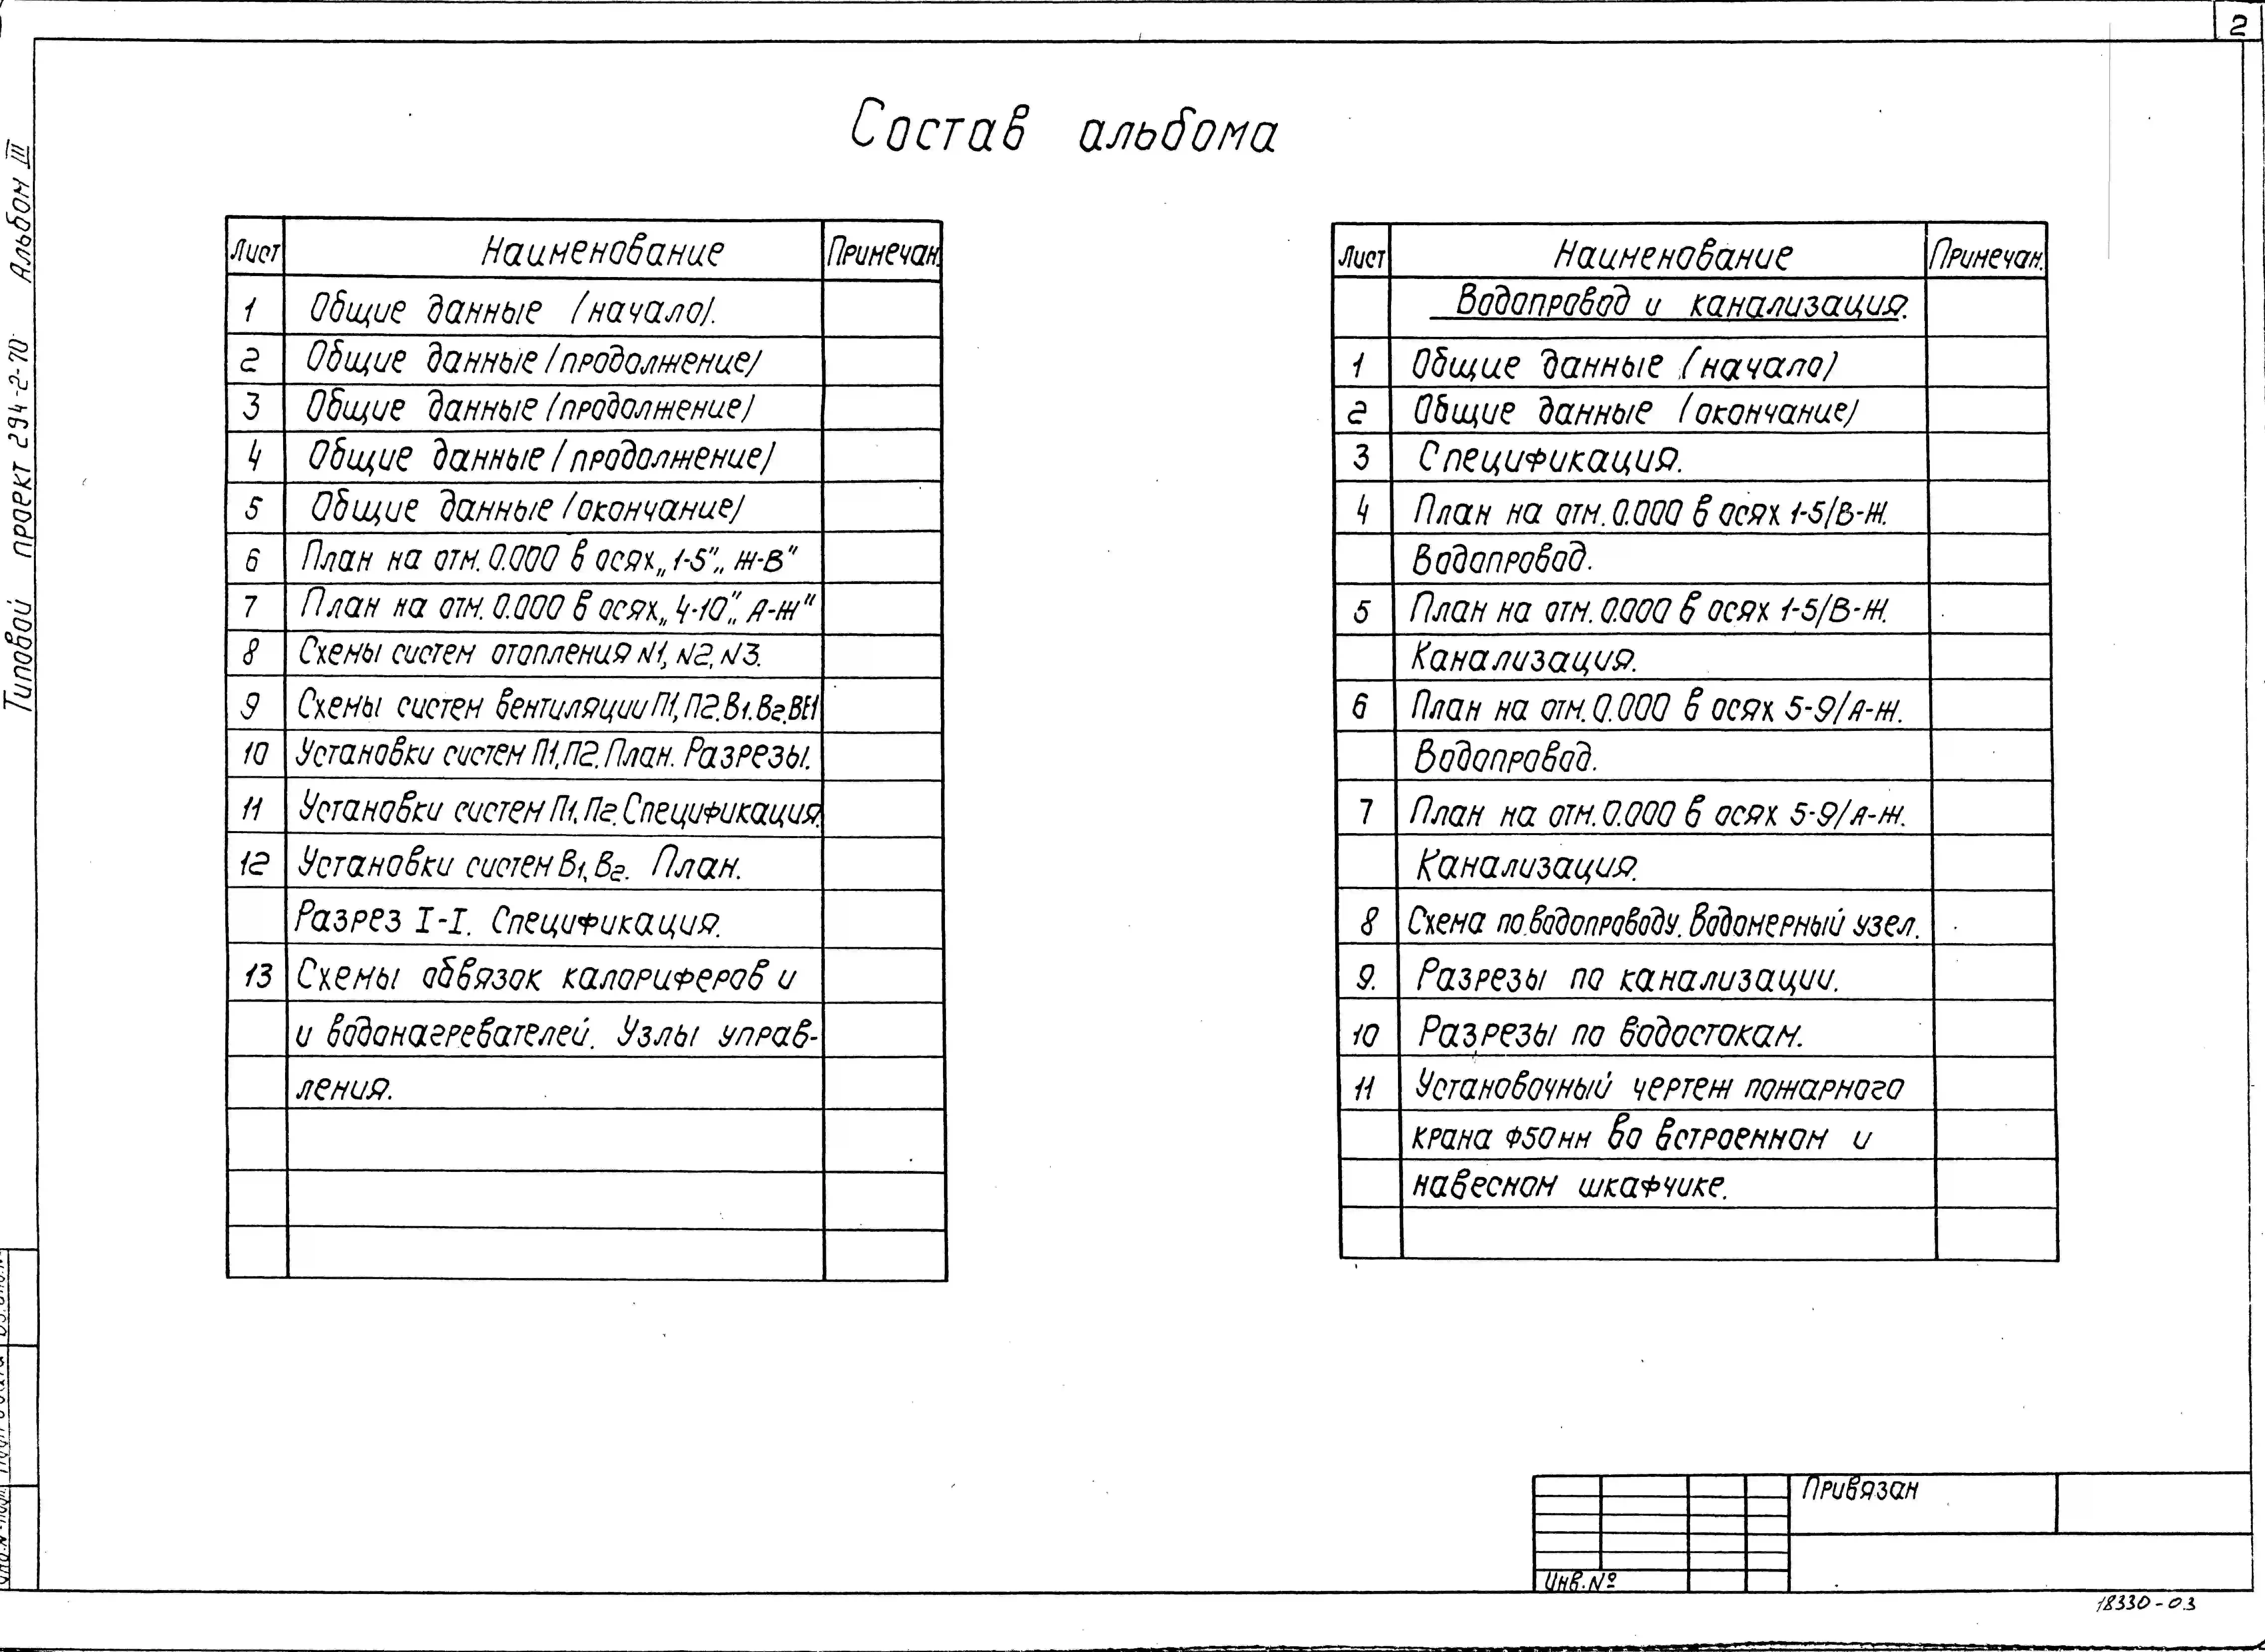 2
Состав альбома
Типовой проект 294-2-70 Альбом III
Лист Наименование Примечан.
1 Общие данные /начало/.
2 Общие данные /продолжение/
3 Общие данные /продолжение/
4 Общие данные /продолжение/
5 Общие данные /окончание/
6 План на отм. 0.000 в осях „1-5", „Ж-В"
7 План на отм. 0.000 в осях „4-10", „А-Ж"
8 Схемы систем отопления N1, N2, N3.
9 Схемы систем вентиляции П1, П2. В1. В2. ВЕ1
10 Установки систем П1, П2. План. Разрезы.
11 Установки систем П1, П2. Спецификация.
12 Установки систем В1, В2. План.
Разрез I-I. Спецификация.
13 Схемы обвязок калориферов и
и водонагревателей. Узлы управ-
ления.
Лист Наименование Примечан.
Водопровод и канализация.
1 Общие данные /начало/
2 Общие данные /окончание/
3 Спецификация.
4 План на отм. 0.000 в осях 1-5/В-Ж.
Водопровод.
5 План на отм. 0.000 в осях 1-5/В-Ж.
Канализация.
6 План на отм. 0.000 в осях 5-9/А-Ж.
Водопровод.
7 План на отм. 0.000 в осях 5-9/А-Ж.
Канализация.
8 Схема по водопроводу. Водомерный узел.
9. Разрезы по канализации.
10 Разрезы по водостокам.
11 Установочный чертеж пожарного
крана Ф50мм во встроенном и
навесном шкафчике.
Привязан
Инв. №
18330-03